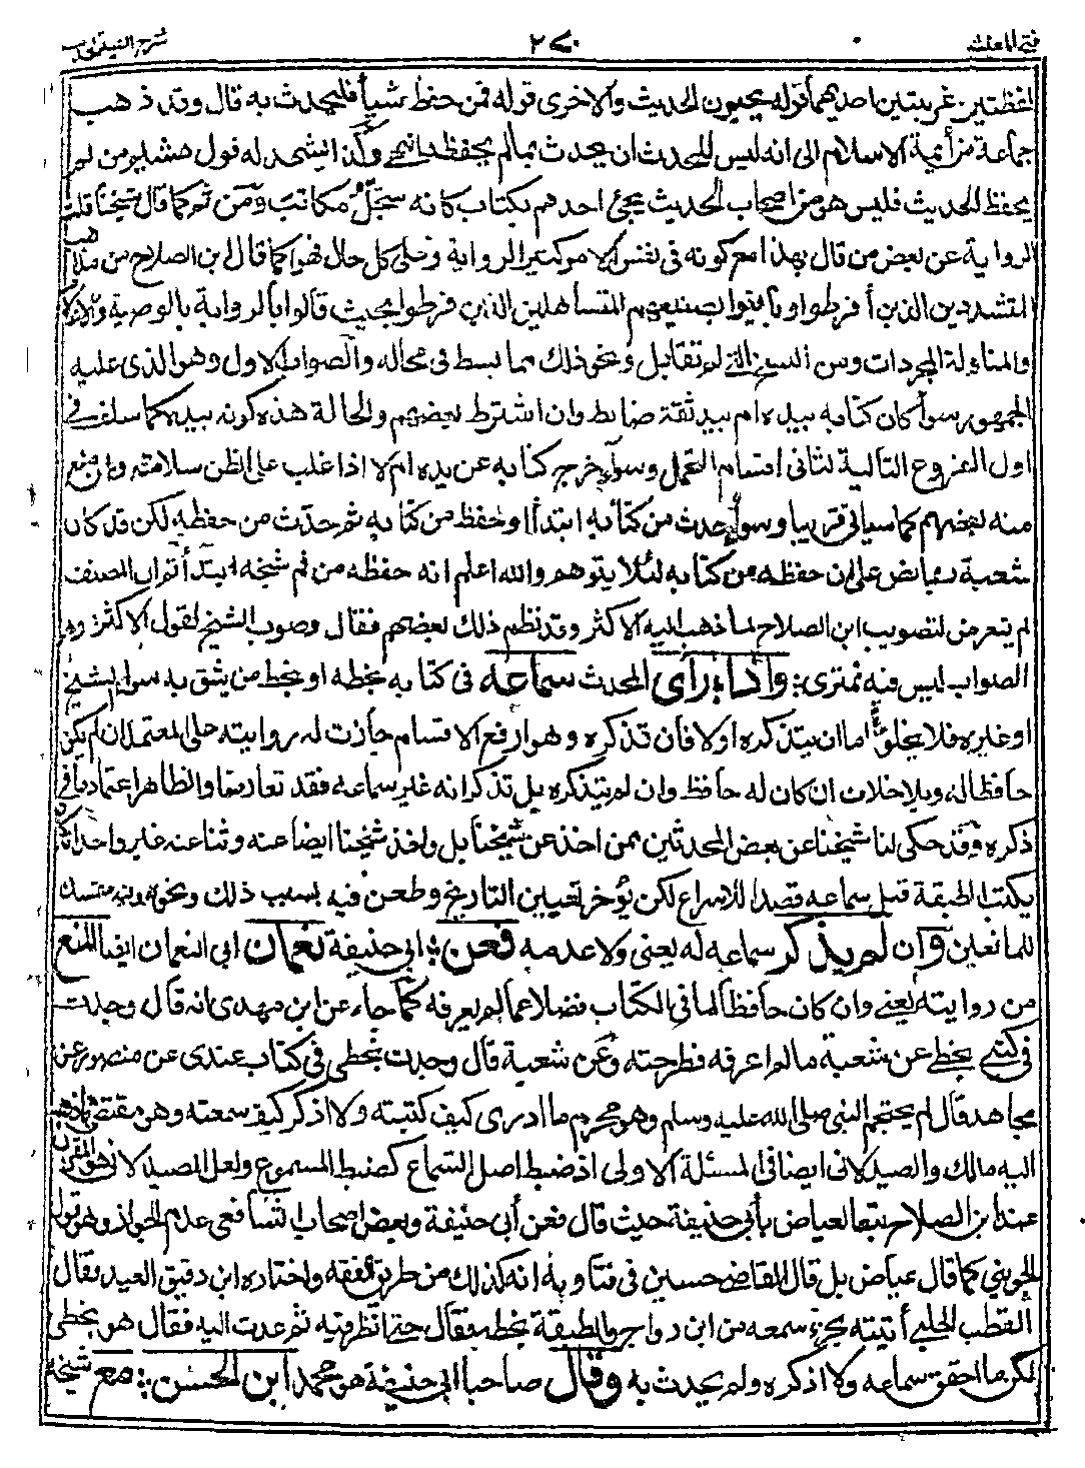 فتح المغيث ٢٧٠ شرح الفية
لفظتين غريبتين احدهما قوله يحيون الحديث والاخرى قوله فمن حفظ شيأ فليحدث به قال وقد ذهب
جماعة من أئمة الاسلام الى انه ليس للمحدث ان يحدث بمالم يحفظه انتهى وكذا يشهد له قول هشيم من لم
يحفظ الحديث فليس هو من اصحاب الحديث يجئ احدهم بكتاب كانه سجل مكاتب ومن ثم كما قال شيخنا قلت
الرواية عن بعض من قال بهذا مع كونه في نفس الامر كثير الرواية وعلى كل حال فهو كما قال ابن الصلاح من مذاهب
المتشددين الذين أفرطوا وباينوا بصنيعهم المتساهلين الذين فرطوا بحيث قالوا بالرواية بالوصية والاعلام
والمناولة المجردات ومن النسخ التي لم تقابل ونحو ذلك مما بسط في محاله والصواب الاول وهو الذى عليه
الجمهور سوأ كان كتابه بيده ام بيد ثقة ضابط وان اشترط بعضهم والحالة هذه كونه بيده كما سلف في
اول الفروع التالية لثانى اقسام التحمل وسوأ خرج كتابه عن يده ام لا اذا غلب على الظن سلامته وان منع
منه بعضهم كما سيأتى قريبا وسوأ حدث من كتابه ابتدأ او حفظ من كتابه ثم حدث من حفظه لكن قد كان
شعبة فيما ينص على ان حفظه من كتابه لئلا يتوهم والله اعلم انه حفظه من فم شيخه ابتدأ ثم ان المصنف
لم يتعرض لتصويب ابن الصلاح لما ذهب اليه الاكثر وقد نظم ذلك بعضهم فقال وصوب الشيخ لقول الاكثر وهو
الصواب ليس فيه نمترى: واذا رأى المحدث سماعه في كتابه بخطه او بخط من يثق به سواء شيخه
او غيره فلا يخلو اما ان يتذكره او لا فان تذكره وهو ارفع الاقسام جازت له روايته على المعتمد ان لم يكن
حافظا له وبلا خلاف ان كان له حافظ وان لم يتذكره بل تذكر انه غير سماعه فقد تعارضا والظاهر اعتماد ما في
ذكره وقد حكى لنا شيخنا عن بعض المحدثين ممن اخذ عن شيخنا بل واخذ شيخنا ايضا عنه وثنا عنه غير واحد انه كان
يكتب الطبقة قبل سماعه قصدا للاسراع لكن يؤخر تعيين التاريخ وطعن فيه بسبب ذلك ونحوه وبه متمسك
للمانعين وان لم يذكر سماعه له يعنى ولا عدمه فعن: ابي حنيفة نعمان ابى النعمان ايضا المنع
من روايته يعنى وان كان حافظا لما في الكتاب فضلا عما لم يعرفه كما جاء عن ابن مهدى انه قال وجدت
في كتبى بخطى عن شعبة مالم اعرفه فطرحته وعن شعبة قال وجدت بخطى في كتاب عندى عن منصور عن
مجاهد قال لم يحتجم النبى صلى الله عليه وسلم وهو محرم ما ادرى كيف كتبته ولا اذكر كيف سمعته وهو مقتضى ما ذهب
اليه مالك والصيدلانى ايضا في المسئلة الاولى اذ ضبط اصل السماع كضبط المسموع ولعل الصيدلانى هو المقرون
عند ابن الصلاح تبعا لعياض بأبى حنيفة حيث قال فعن أبى حنيفة وبعض اصحاب الشافعى عدم الجواز وهو قول
الجوينى كما قال عياض بل قال القاضى حسين في فتاويه انه كذلك من طريق الفقه واختاره ابن دقيق العيد فقال
القطب الحلبى أتيته بجزء سمعه من ابن رواج والطبقة بخطه فقال حتى انظر فيه ثم عدت اليه فقال هو بخطى
لكن ما احقق سماعه ولا اذكره ولم يحدث به وقال صاحبا ابى حنيفة هو محمد ابن الحسن: مع شيخه